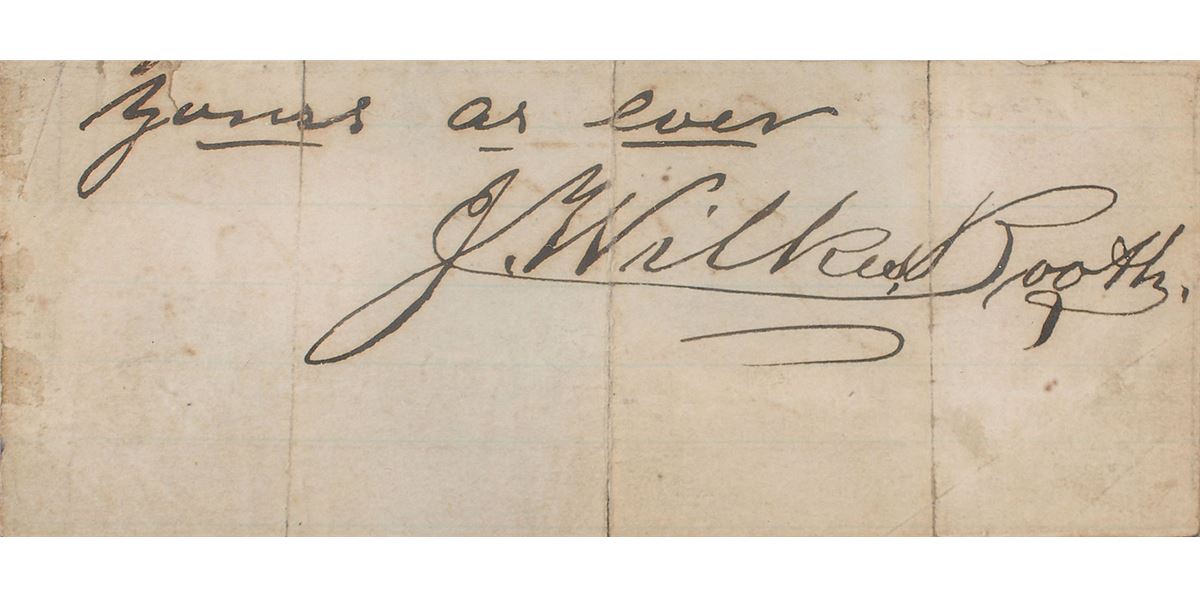 yours as ever
J. Wilkes Booth.